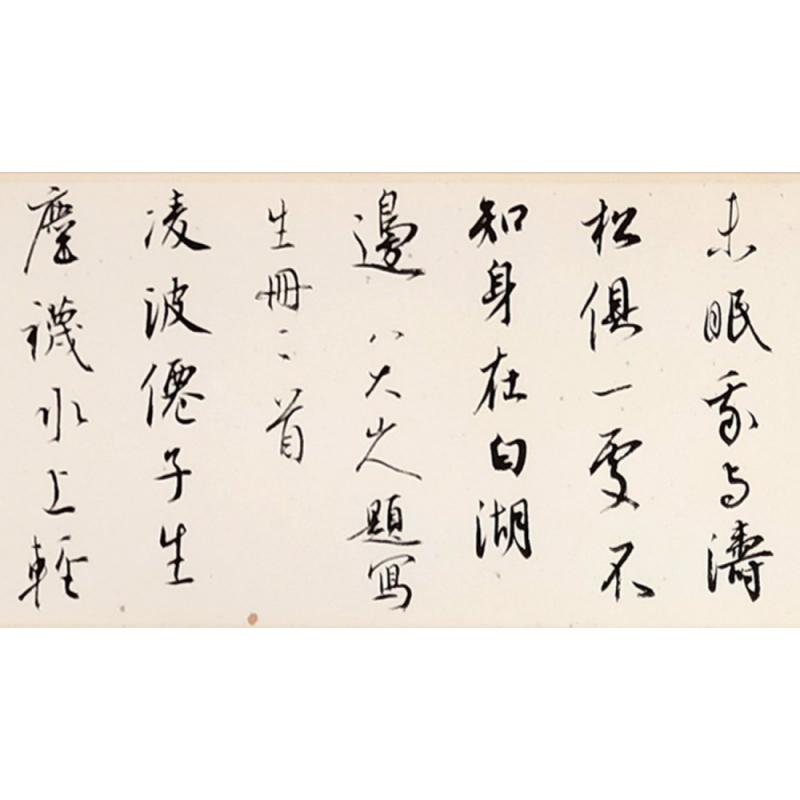 未眠我与濤
松俱一處不
知身在白湖
邊 八大山人題寫
生冊二首
凌波僊子生
塵襪水上輕